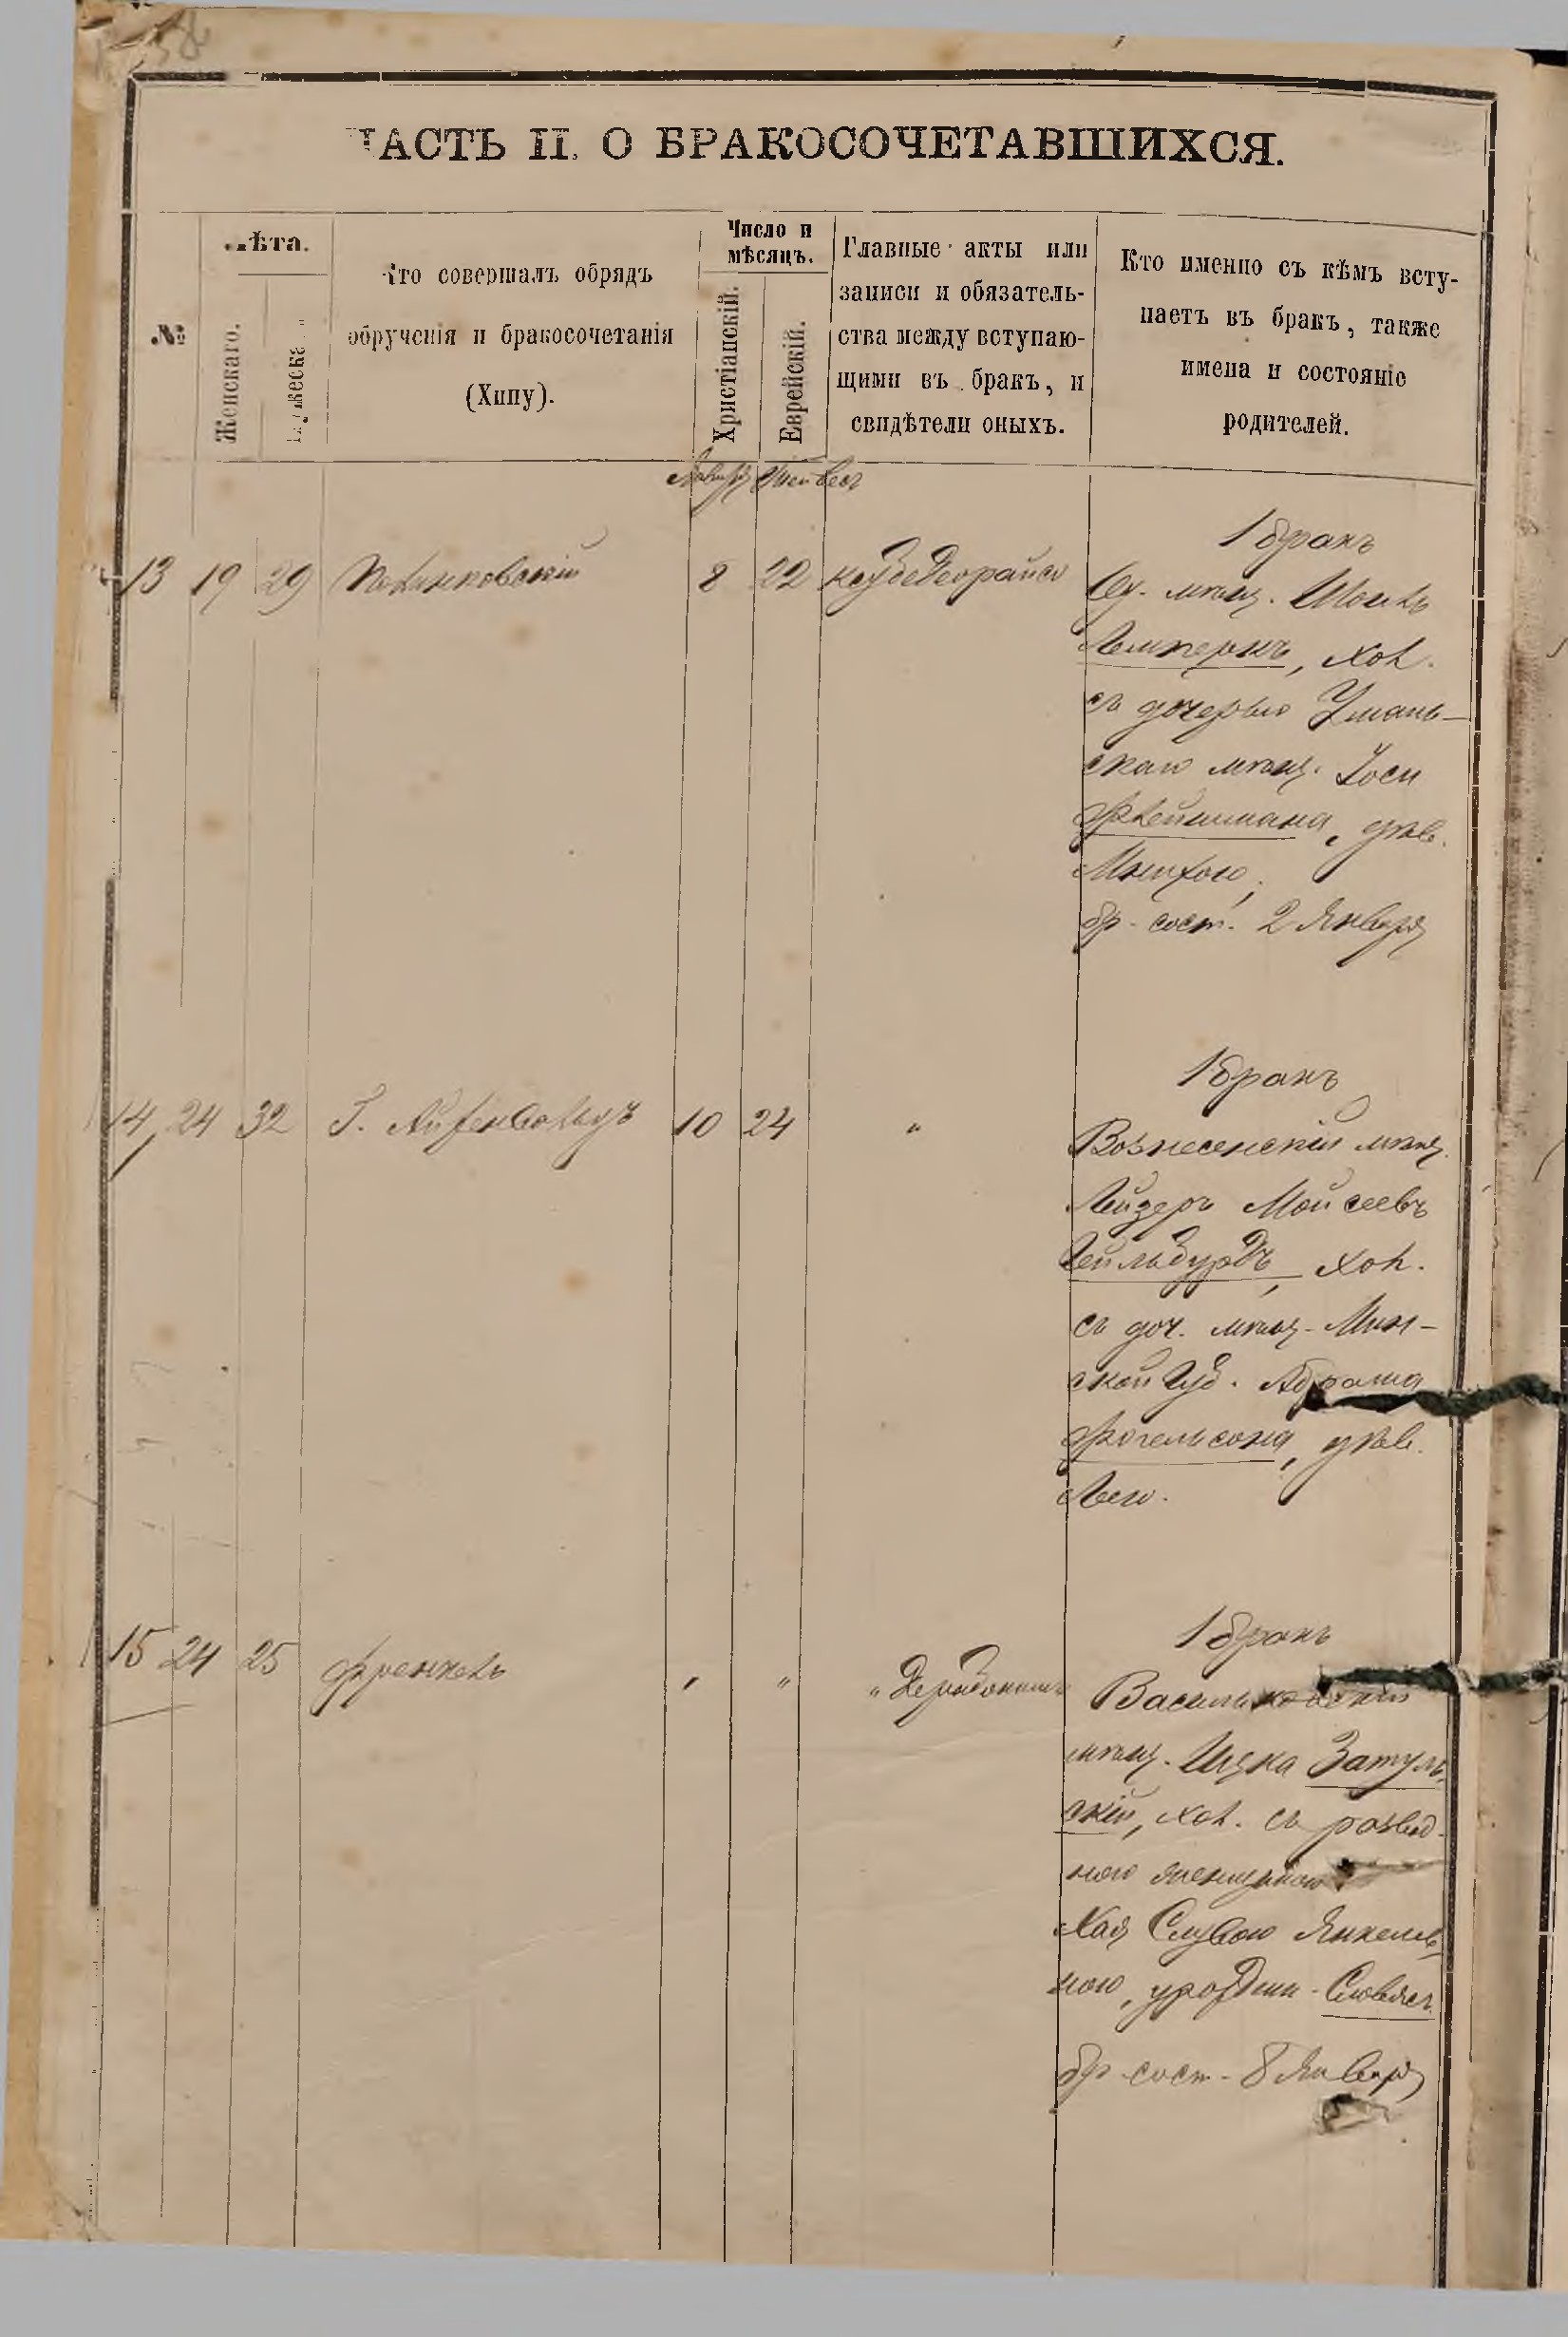 ЧАСТЬ II. О БРАКОСОЧЕТАВШИХСЯ.
№
Лѣта.
Женскаго.
Мужескаго
Кто совершалъ обрядъ
обрученія и бракосочетанія
(Хипу).
Число и
мѣсяцъ.
Христіанскій.
Еврейскій.
Главные акты или
записи и обязатель-
ства между вступаю-
щими въ бракъ, и
свидѣтели оныхъ.
Кто именно съ кѣмъ всту-
паетъ въ бракъ, также
имена и состояніе
родителей.
13 19 29 8 22
1 бракъ
мѣщ.
Лемперкъ, хол.
съ дочерью Умань-
скаго мѣщ. Іоси
Флейшмана, дѣв.
бр. сост. 2 Января
14 24 32 10 24 "
1 бракъ
Вознесенскій мѣщ.
Лейзеръ Мойсеевъ
Гейльбурдъ, хол.
съ доч. мѣщ. Мин-
ской Губ. Абрама
Фогельсона, дѣв.
Леею.
15 24 25 Френкель " " "
1 бракъ
Васильковскій
мѣщ. Ицка Затуль-
скій, хол. съ развод-
ною женщиною
Хая Слувою Янкелев-
ною, урожден.
бр. сост. 8 Января